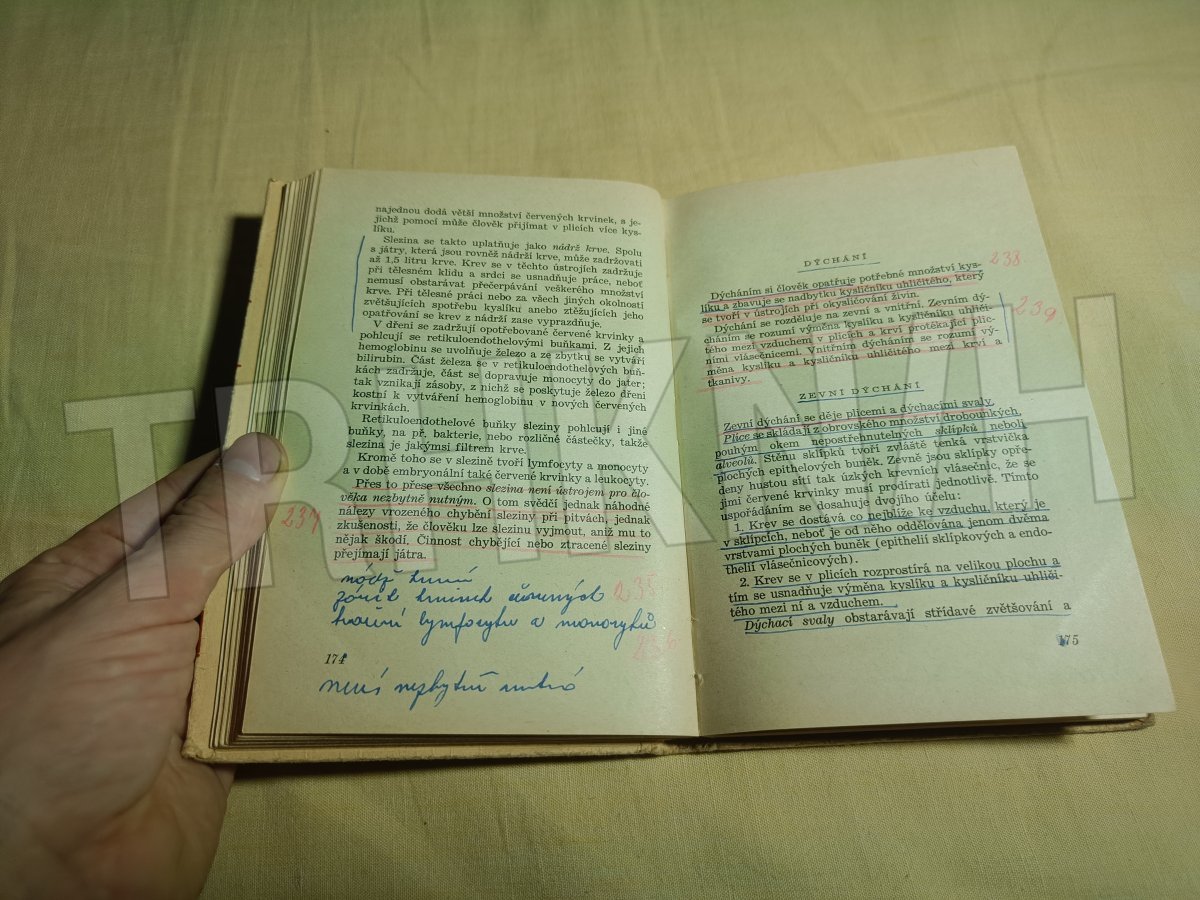 najednou dodá větší množství červených krvinek, s je-
jichž pomocí může člověk přijímat v plicích více kys-
líku.
Slezina se takto uplatňuje jako nádrž krve. Spolu
s játry, která jsou rovněž nádrží krve, může zadržovati
až 1,5 litru krve. Krev se v těchto ústrojích zadržuje
při tělesném klidu a srdci se usnadňuje práce, neboť
nemusí obstarávat přečerpávání veškerého množství
krve. Při tělesné práci nebo za všech jiných okolností
zvětšujících spotřebu kyslíku anebo ztěžujících jeho
opatřování se krev z nádrží zase vyprazdňuje.
V dřeni se zadržují opotřebované červené krvinky a
pohlcují se retikuloendothelovými buňkami. Z jejich
hemoglobinu se uvolňuje železo a ze zbytku se vytváří
bilirubin. Část železa se v retikuloendothelových buň-
kách zadržuje, část se dopravuje monocyty do jater;
tak vznikají zásoby, z nichž se poskytuje železo dřeni
kostní k vytváření hemoglobinu v nových červených
krvinkách.
Retikuloendothelové buňky sleziny pohlcují i jiné
buňky, na př. bakterie, nebo rozličné částečky, takže
slezina je jakýmsi filtrem krve.
Kromě toho se v slezině tvoří lymfocyty a monocyty
a v době embryonální také červené krvinky a leukocyty.
Přes to přese všechno slezina není ústrojem pro člo-
věka nezbytně nutným. O tom svědčí jednak náhodné
nálezy vrozeného chybění sleziny při pitvách, jednak
zkušenosti, že člověku lze slezinu vyjmout, aniž mu to
nějak škodí. Činnost chybějící nebo ztracené sleziny
přejímají játra.
237
235
lymfocytů a monocytů
236
174
není nezbytně nutná
DÝCHÁNÍ
Dýcháním si člověk opatřuje potřebné množství kys-
líku a zbavuje se nadbytku kysličníku uhličitého, který
se tvoří v ústrojích při okysličování živin.
238
Dýchání se rozděluje na zevní a vnitřní. Zevním dý-
cháním se rozumí výměna kyslíku a kysličníku uhliči-
tého mezi vzduchem v plicích a krví protékající plic-
ními vlásečnicemi. Vnitřním dýcháním se rozumí vý-
měna kyslíku a kysličníku uhličitého mezi krví a
tkanivy.
239
ZEVNÍ DÝCHÁNÍ
Zevní dýchání se děje plicemi a dýchacími svaly.
Plíce se skládají z obrovského množství drobounkých,
pouhým okem nepostřehnutelných sklípků neboli
alveolů. Stěnu sklípků tvoří zvláště tenká vrstvička
plochých epithelových buněk. Zevně jsou sklípky opře-
deny hustou sítí tak úzkých krevních vlásečnic, že se
jimi červené krvinky musí prodírati jednotlivě. Tímto
uspořádáním se dosahuje dvojího účelu:
1. Krev se dostává co nejblíže ke vzduchu, který je
v sklípcích, neboť je od něho oddělována jenom dvěma
vrstvami plochých buněk (epithelií sklípkových a endo-
thelií vlásečnicových).
2. Krev se v plicích rozprostírá na velikou plochu a
tím se usnadňuje výměna kyslíku a kysličníku uhliči-
tého mezi ní a vzduchem.
Dýchací svaly obstarávají střídavé zvětšování a
175